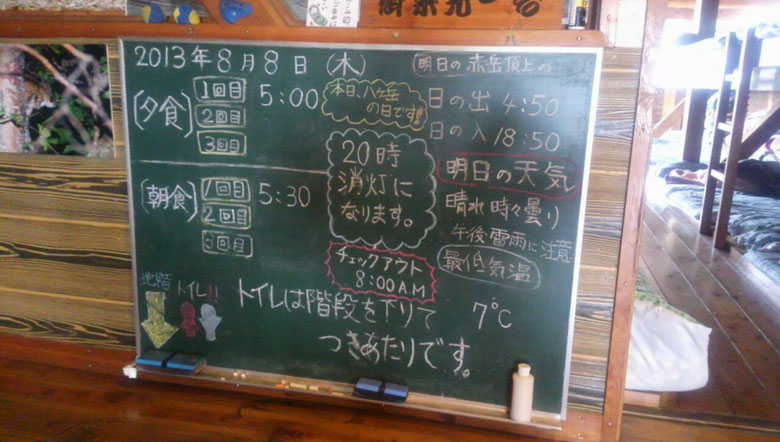 2013年8月8日 (木)
(夕食)
1回目 5:00
2回目
3回目
(朝食)
1回目 5:30
2回目
3回目
本日、八ヶ岳
の日です!!
20時
消灯に
なります。
チェックアウト
8:00AM
明日の赤岳頂上の
日の出 4:50
日の入 18:50
明日の天気
晴れ時々曇り
午後雷雨に注意
最低気温
7℃
地階
トイレ!!
トイレは階段を下りて
つきあたりです。